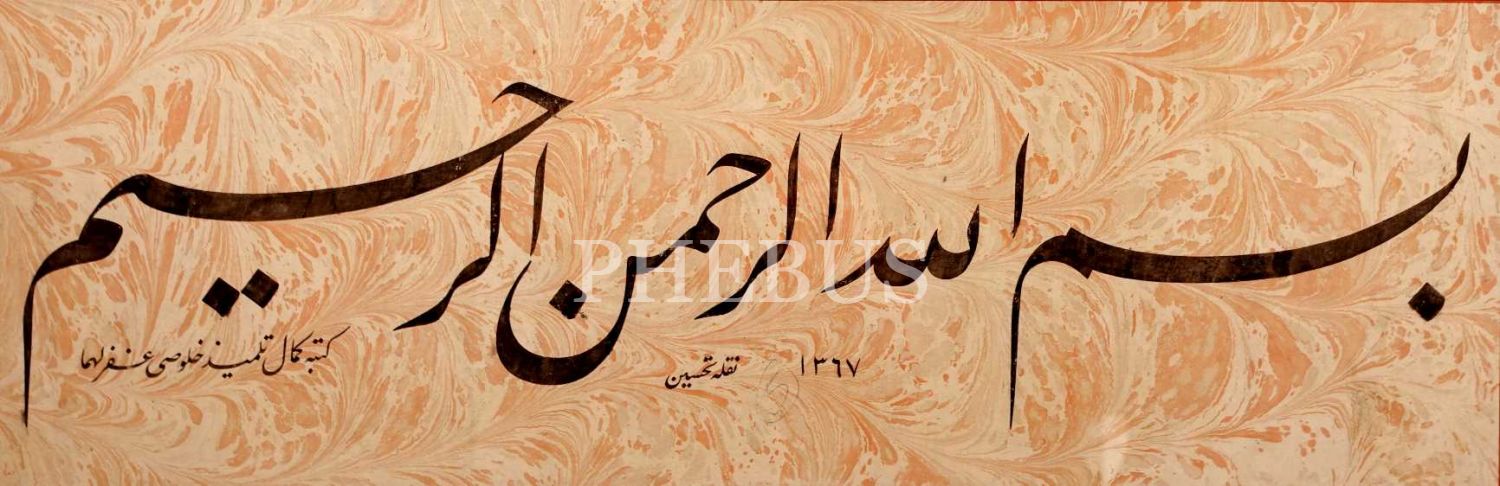 بسم الله الرحمن الرحيم
١٣٦٧
نقله تحسين
كتبه كمال تلميذ خلوصى غفر لهما
PHEBUS